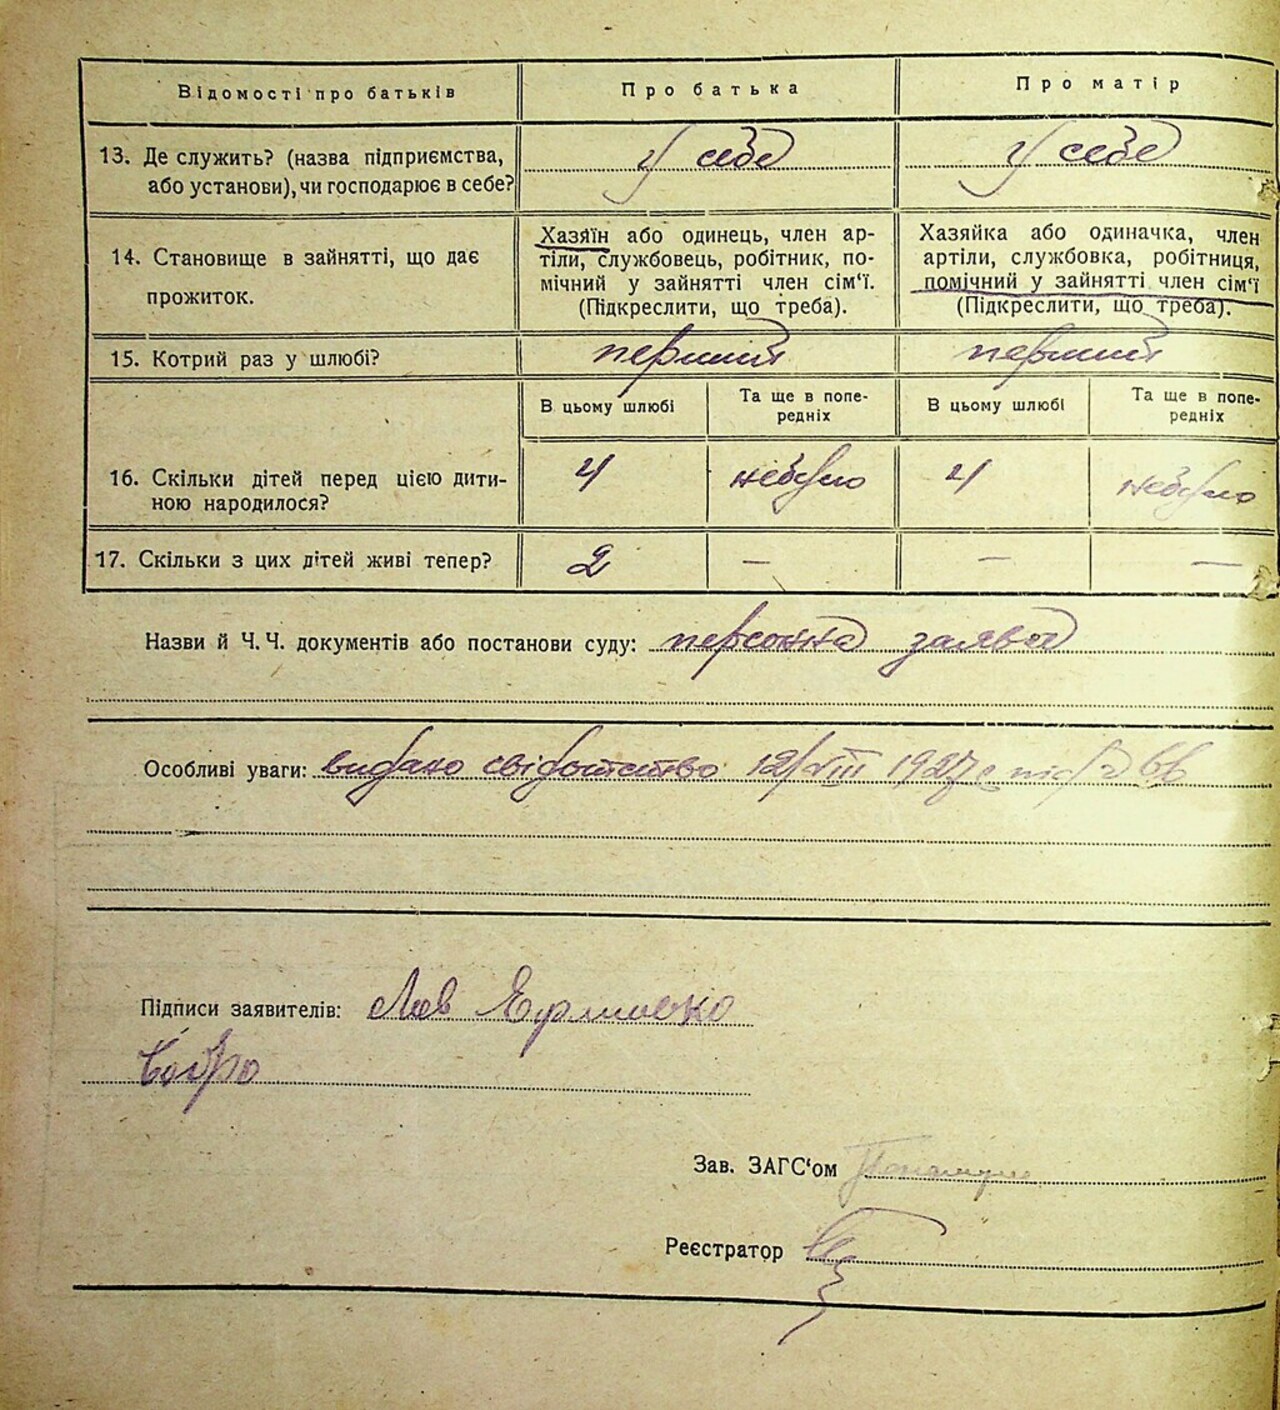 Відомості про батьків
Про батька
Про матір
13. Де служить? (назва підприємства,
або установи), чи господарює в себе?
у себе
у себе
14. Становище в зайнятті, що дає
прожиток.
Хазяїн або одинець, член ар-
тіли, службовець, робітник, по-
мічний у зайнятті член сім'ї.
(Підкреслити, що треба).
Хазяйка або одиначка, член
артіли, службовка, робітниця,
помічний у зайнятті член сім'ї
(Підкреслити, що треба).
15. Котрий раз у шлюбі?
перший
перший
В цьому шлюбі
Та ще в попе-
редніх
В цьому шлюбі
Та ще в попе-
редніх
16. Скільки дітей перед цією дити-
ною народилося?
4
небуло
4
небуло
17. Скільки з цих дітей живі тепер?
2
—
—
—
Назви й Ч. Ч. документів або постанови суду: персонна заява
Особливі уваги: видано свідотство 12/VIII 1927 під 66
Підписи заявителів: Лев
Зав. ЗАГС'ом
Реєстратор